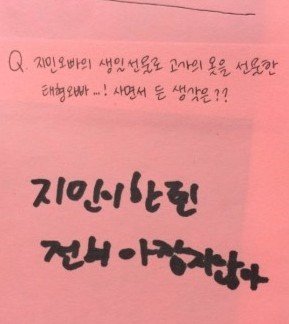 Q. 지인오빠의 생일선물로 고가의 옷을 선물한
태형오빠...! 사면서 든 생각은??
지민이한틴
전혀 아깝지않아